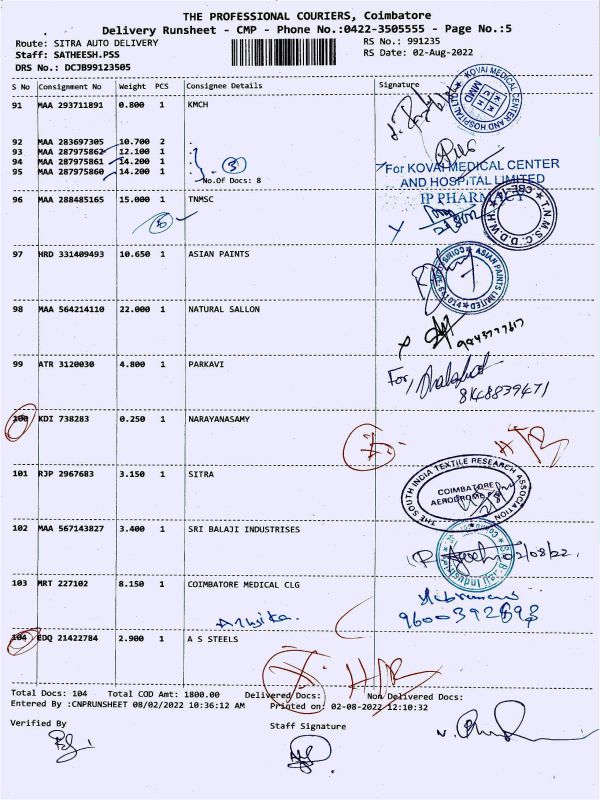 THE PROFESSIONAL COURIERS, Coimbatore
Delivery Runsheet - CMP - Phone No.:0422-3505555 - Page No.:5
Route: SITRA AUTO DELIVERY
RS No.: 991235
Staff: SATHEESH.PSS
RS Date: 02-Aug-2022
DRS No.: DCJB99123505
S No Consignment No Weight PCS Consignee Details Signature
91 MAA 293711891 0.800 1 KMCH
KOVAI MEDICAL CENTER AND HOSPITAL LTD
92 MAA 283697305 10.700 2 .
93 MAA 287975862 12.100 1 .
94 MAA 287975861 14.200 1 .
95 MAA 287975860 14.200 1 .
No.Of Docs: 8
For KOVAI MEDICAL CENTER
AND HOSPITAL LIMITED
IP PHARMACY
96 MAA 288485165 15.000 1 TNMSC
97 HRD 331409493 10.650 1 ASIAN PAINTS
ASIAN PAINTS LIMITED
98 MAA 564214110 22.000 1 NATURAL SALLON
99 ATR 3120030 4.800 1 PARKAVI
For,
8148839471
100 KDI 738283 0.250 1 NARAYANASAMY
101 RJP 2967683 3.150 1 SITRA
THE SOUTH INDIA TEXTILE RESEARCH ASSOCIATION
COIMBATORE
AERODROME
102 MAA 567143827 3.400 1 SRI BALAJI INDUSTRISES
02/08/22.
103 MRT 227102 8.150 1 COIMBATORE MEDICAL CLG
104 EDQ 21422784 2.900 1 A S STEELS
Total Docs: 104 Total COD Amt: 1800.00 Delivered Docs: Non Delivered Docs:
Entered By :CNPRUNSHEET 08/02/2022 10:36:12 AM Printed on: 02-08-2022 12:10:32
Verified By
Staff Signature